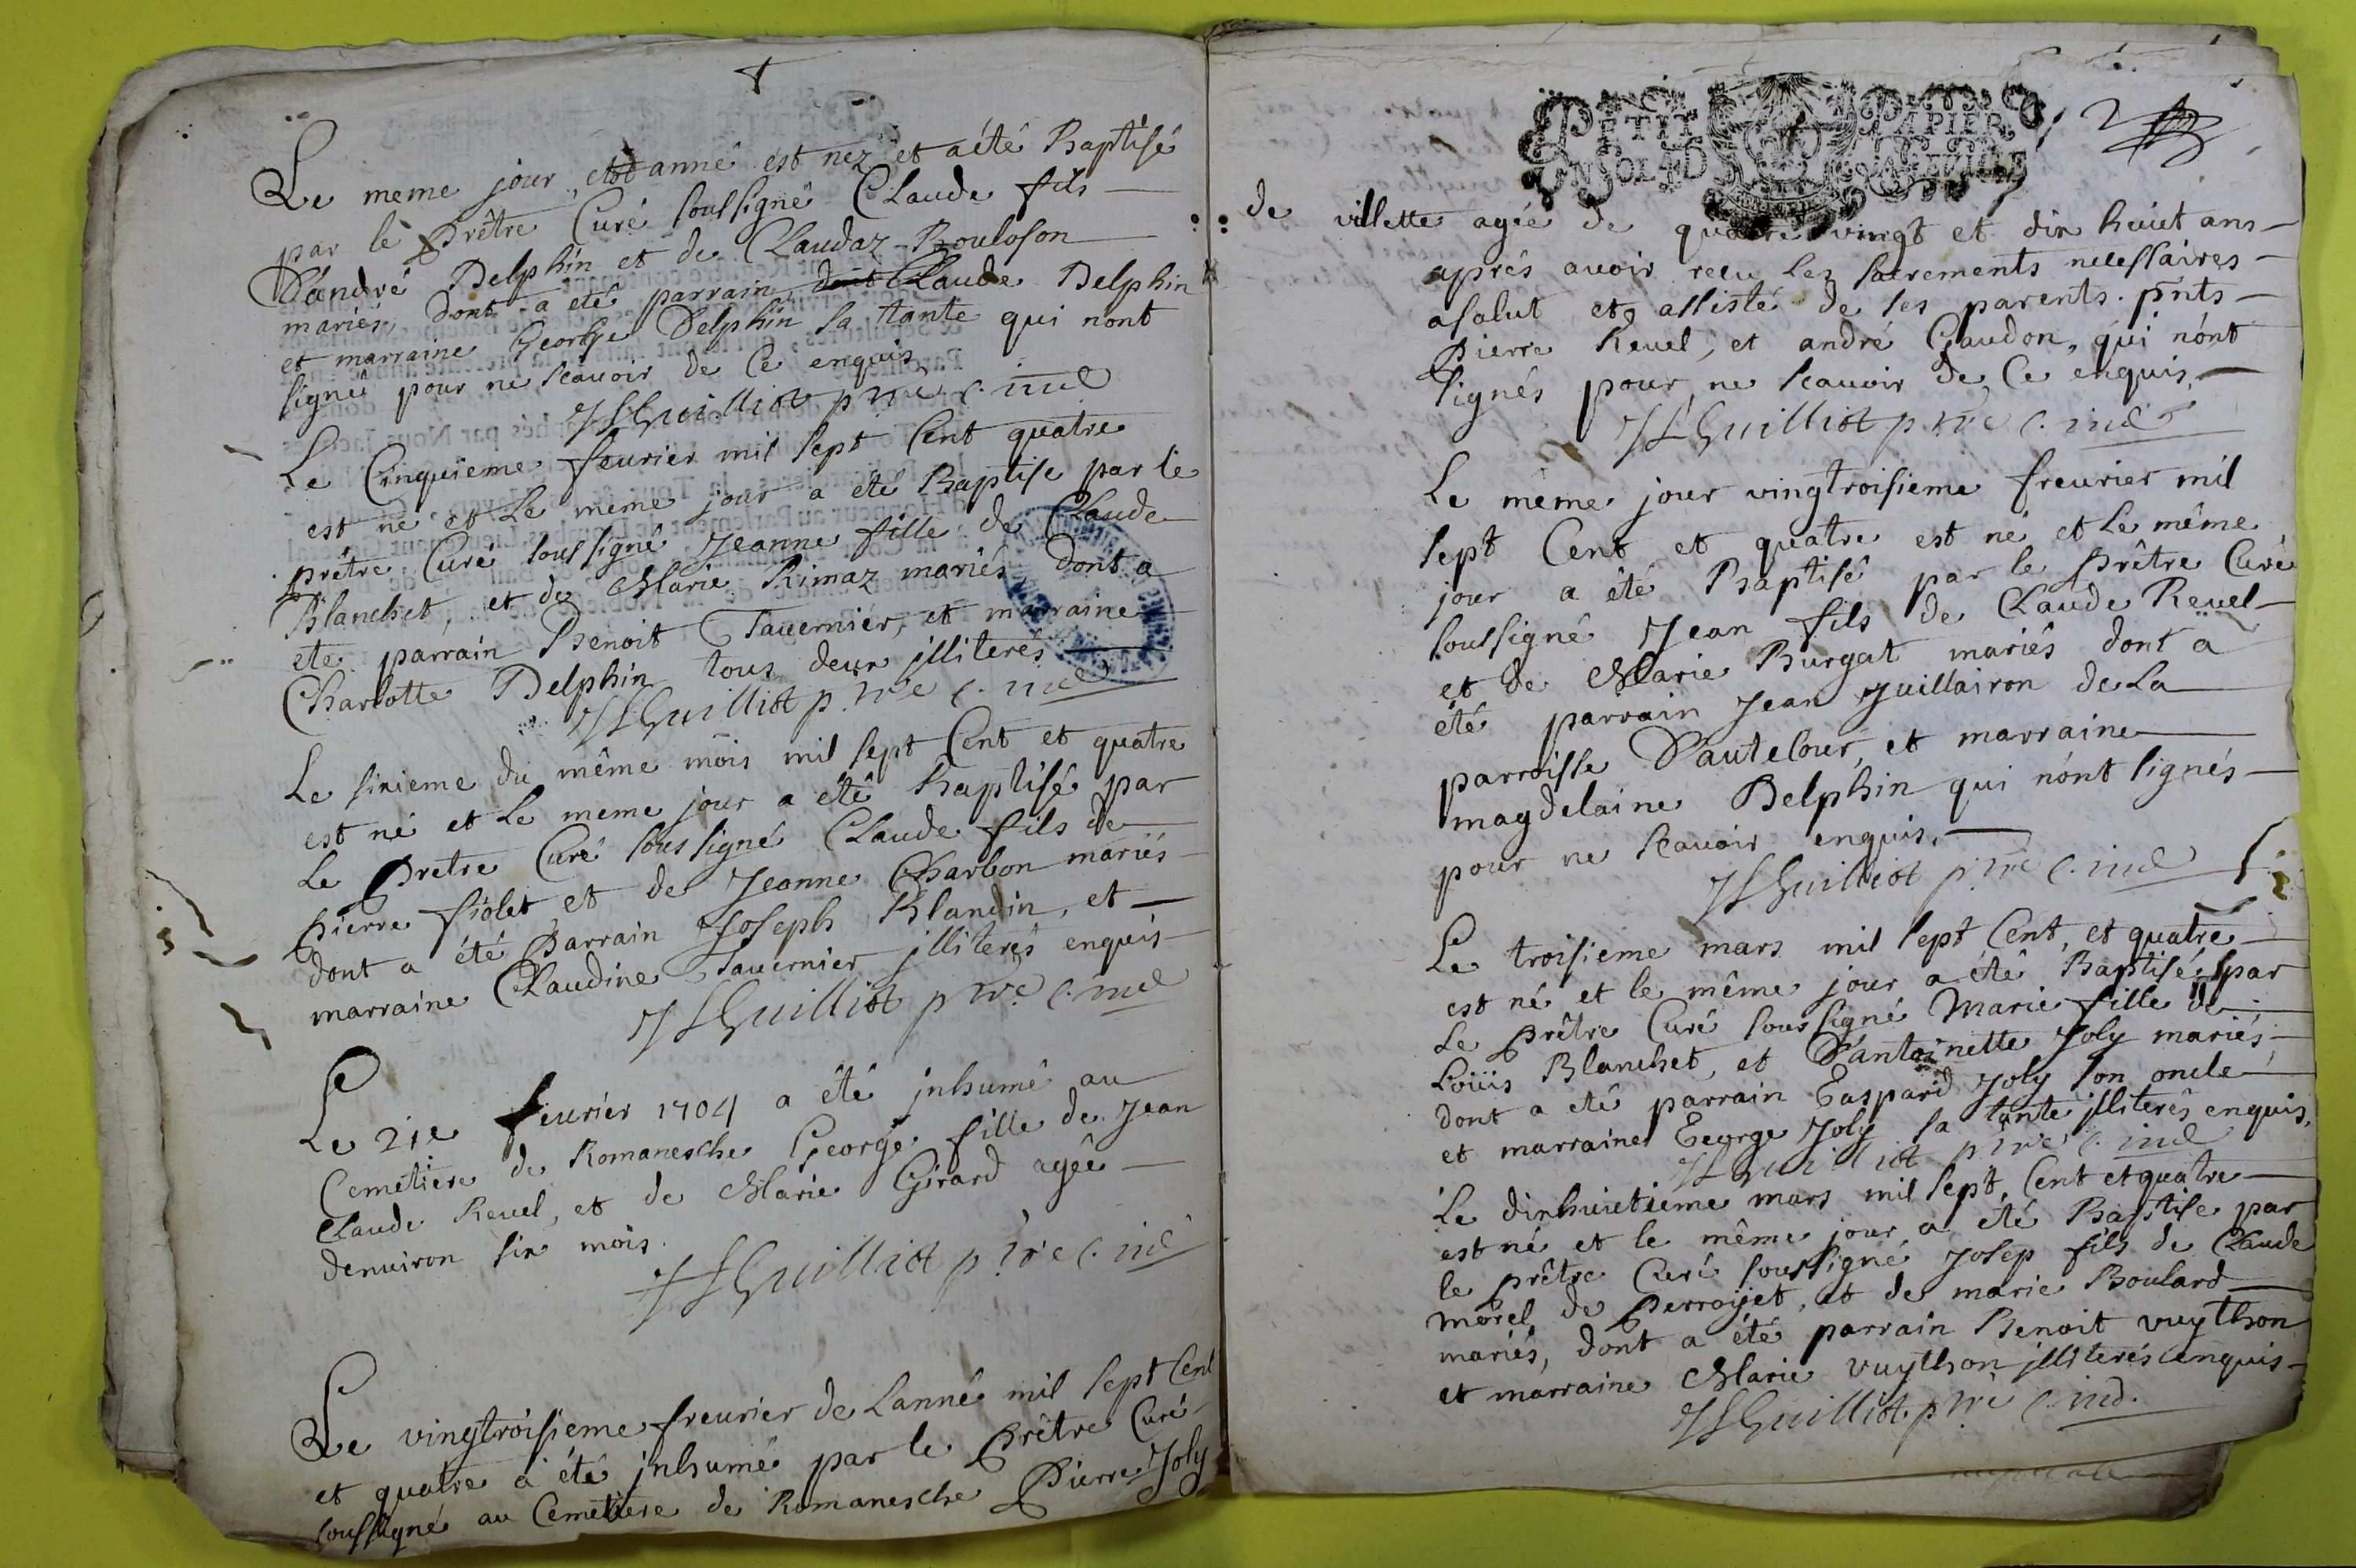 Le meme jour, et anné est nez et a été Baptisé
par le Prêtre Curé soussigné Claude fils
D'andré Delphin et de Claudaz Bouloson
mariés, dont a eté parrain Claude Delphin
et marraine George Delphin sa tante qui nont
signé pour ne scauoir de ce enquis
JSGuilliot p.tre c. ind
Le Cinquieme feurier mil sept Cent quatre
est né et Le meme jour a été Baptise par le
prêtre Curé soussigné Jeanne fille de Claude
Blanchet, et de Marie Rimaz mariés, dont a
eté parrain Benoit Tauernier, et marraine
Charlotte Delphin tous deux jlliterés
JSGuilliot p.tre c. ind
Le sixieme du même mois mil sept Cent et quatre
est né et Le meme jour a été Baptisé par
Le Pretre Curé soussigné Claude fils de
pierre fiolet et de Jeanne Charbon mariés
dont a été Parrain Joseph Blandin, et
marraine Claudine Tauernier jlliterés enquis
JSGuilliot p.tre c. ind
Le 21e feurier 1704 a été jnhumé au
Cemetiere de Romanesche George fille de Jean
Claude Reuel, et de Marie Girard agée
denuiron six mois.
JSGuilliot p.tre c. ind
Le vingtroisieme freurier de Lanné mil sept Cent
et quatre a été jnhumé par le Prêtre Curé
soussigné au Cemetiere de Romanesche Pierre Joly
PETIT PAPIER
2
de villette agée de quatre vingt et dix huict ans
aprés auoir recu Les sacrements necessaires
asalut et assisté de ses parents. pnts
Pierre Reuel, et andré Gaudon, qui n'ont
signés pour ne scauoir de Ce enquis
JSGuilliot p.tre c. ind
Le même jour vingtroisieme freurier mil
sept Cent et quatre est né et Le même
jour a été Baptisé par le Prêtre Curé
soussigné Jean fils de Claude Reuel
et de Marie Burgat mariés dont a
été parrain Jean Juillairon de La
parroisse D'autecour, et marraine
magdelaine Delphin qui n'ont signés
pour ne scauoir enquis.
JSGuilliot p.tre c. ind
Le troisieme mars mil sept Cent, et quatre
est né et le même jour a été Baptisé par
Le Prêtre Curé soussigné Marie fille de
Loüis Blanchet, et D'antoinette Joly mariés
dont a eté parrain Gaspard Joly son oncle
et marraine George Joly sa tante jlliterés enquis.
JSGuilliot p.tre c. ind
Le dixhuictieme mars mil sept, Cent et quatre
est né et le même jour a été Baptise par
le prêtre Curé soussigné Josep fils de Claude
morel de Perroyet, et de marie Boulard
mariés, dont a été parrain Benoit vuython
et marraine Marie vuython jlliterés enquis
JSGuilliot p.tre c. ind.